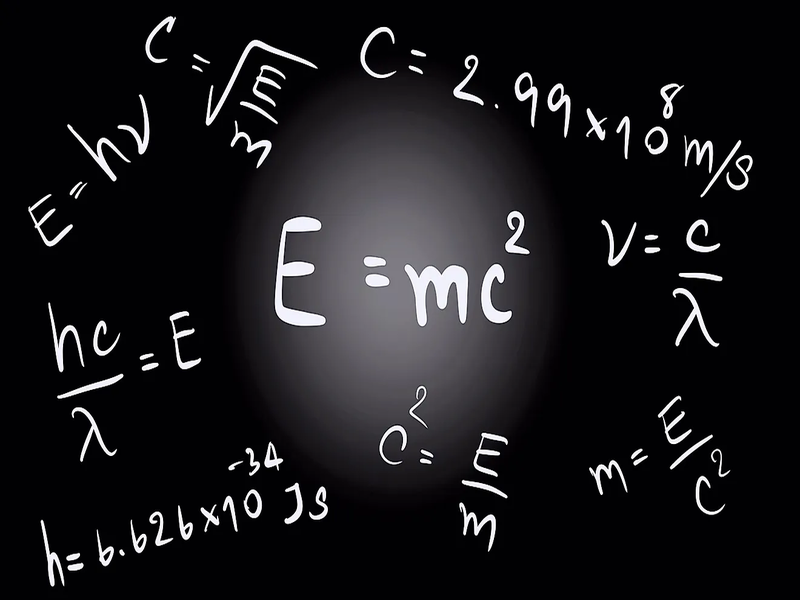 C = √(E/m)
C = 2.99×10⁸ m/s
E = hν
E = mc²
ν = c/λ
hc/λ = E
c² = E/m
m = E/c²
h = 6.626×10⁻³⁴ JS